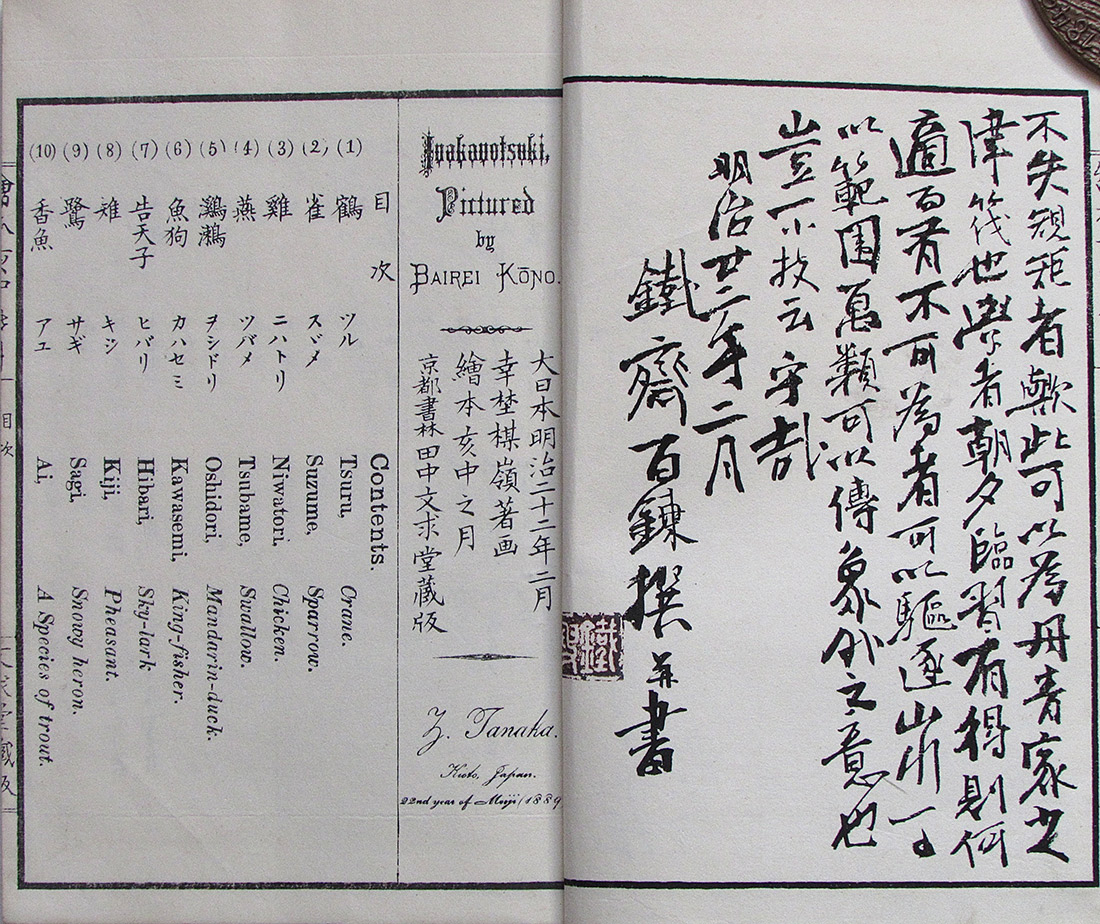 不失規矩者歟此可以為丹青家之
津筏也學者朝夕臨習有得則何
適而不可為者可以驅逐山川
以範圍萬類可以傳象外之意也
豈小技云乎哉
明治廿二年二月
鐵齋百鍊撰并書
Inakanotsuki,
Pictured
by
BAIREI KŌNO.
大日本明治二十二年二月
幸埜楳嶺著画
繪本亥中之月
京都書林田中文求堂藏版
Z. Tanaka.
Kioto, Japan.
22nd year of Meiji (1889
目次
Contents.
(1) 鶴 ツル Tsuru, Crane.
(2) 雀 スヾメ Suzume, Sparrow.
(3) 雞 ニハトリ Niwatori, Chicken.
(4) 燕 ツバメ Tsubame, Swallow.
(5) 鸂鶒 ヲシドリ Oshidori, Mandarin-duck.
(6) 魚狗 カハセミ Kawasemi, King-fisher.
(7) 告天子 ヒバリ Hibari, Sky-lark
(8) 雉 キジ Kiji, Pheasant.
(9) 鷺 サギ Sagi, Snowy heron.
(10) 香魚 アユ Ai, A Species of trout.
目次